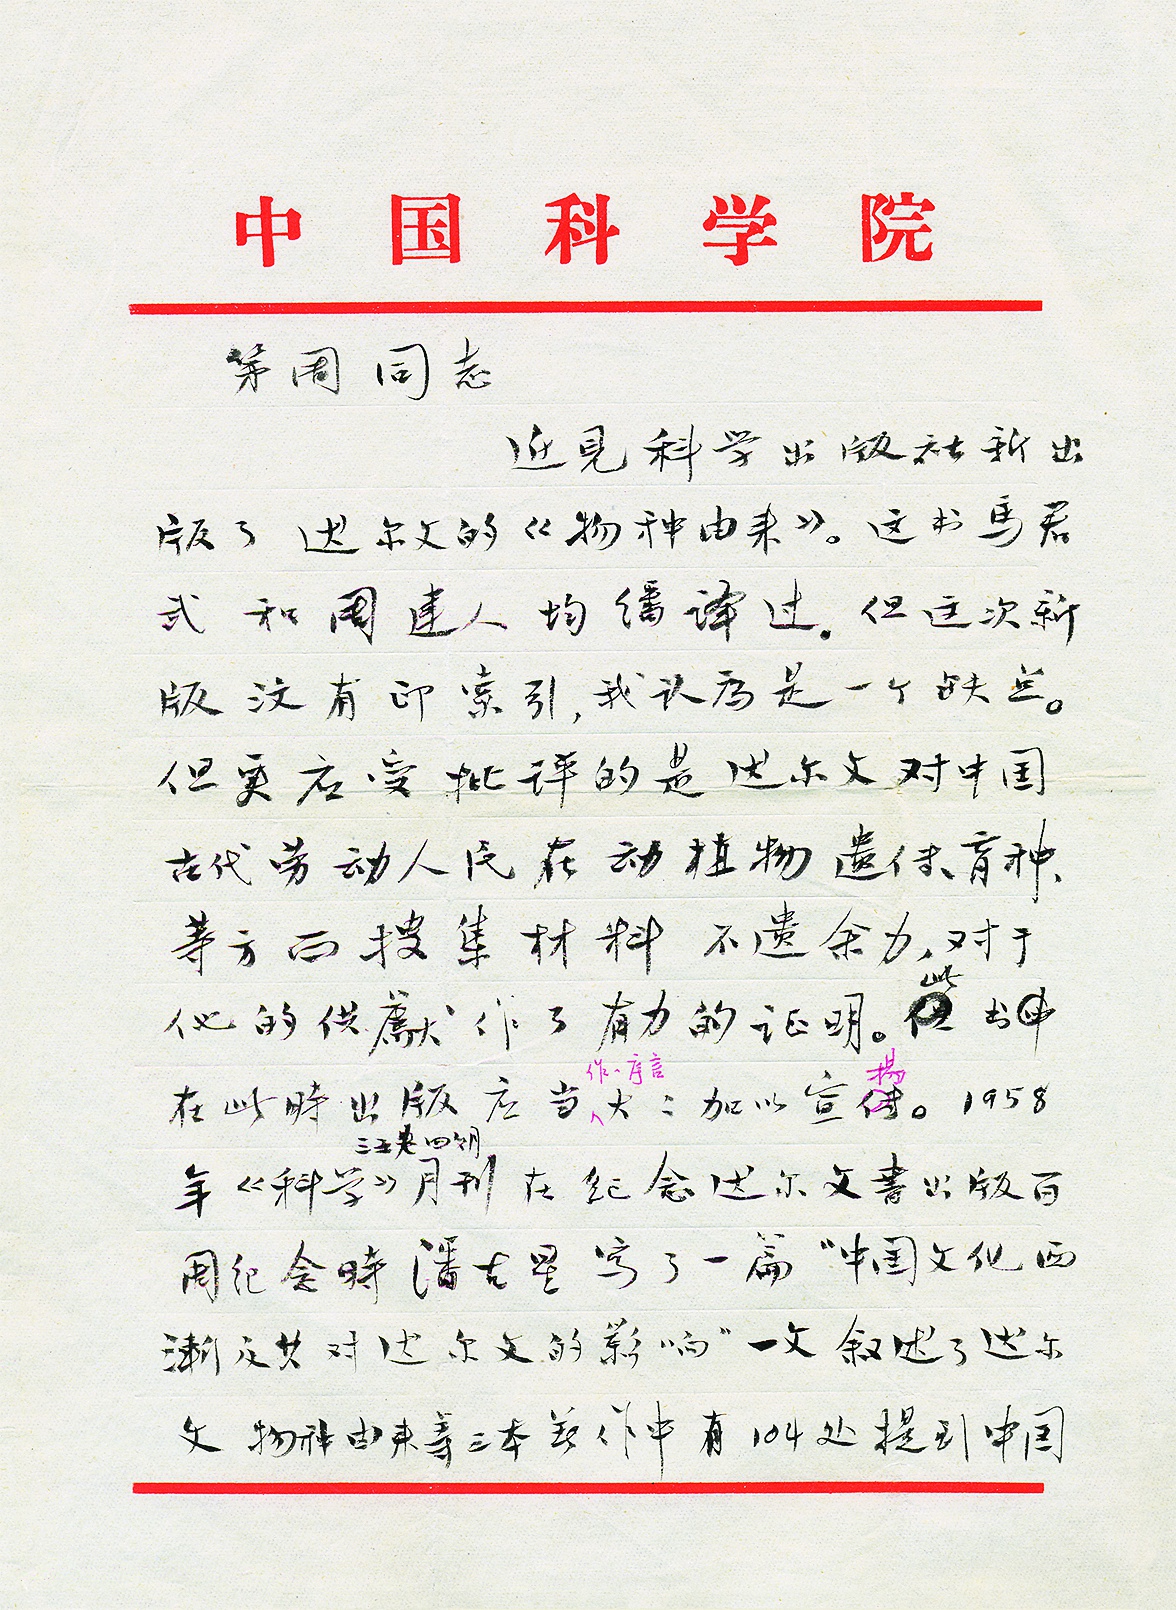 中国科学院
第周同志
近见科学出版社新出
版了达尔文的《物种由来》。这书馬君
武和周建人均繙译过。但这次新
版没有印索引,我认为是一个缺点。
但更应受批评的是达尔文对中国
古代劳动人民在动植物遗传、育种、
等方面搜集材料不遗余力,对于
他的供獻作了有力的证明。此书
在此時出版应当作一序言大:加以宣揚。1958
三五卷四期
年《科学》月刊在纪念达尔文書出版百
周纪念時潘吉星写了一篇“中国文化西
漸及其对达尔文的影响”一文叙述了达尔
文物种由来等三本著作中有104处提到中国